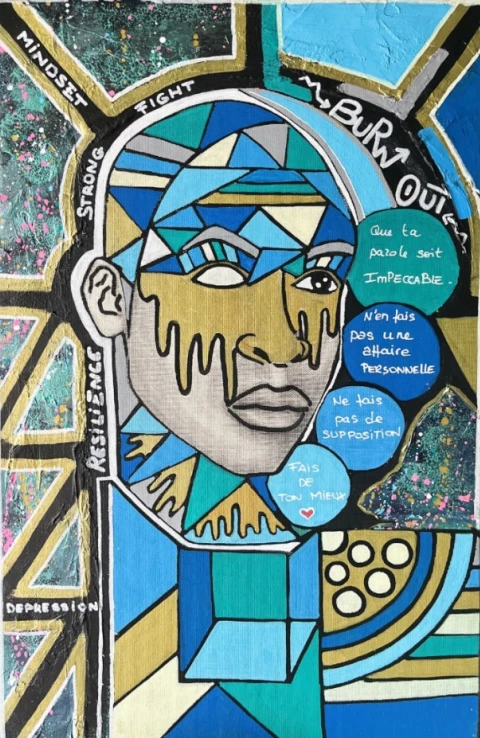 MINDSET
FIGHT
STRONG
BURN
OUT
Que ta
parole soit
IMPECCABLE.
N'en fais
pas une
affaire
PERSONNELLE
Ne fais
pas de
SUPPOSITION
FAIS
DE
TON MIEUX
RESILIENCE
DEPRESSION